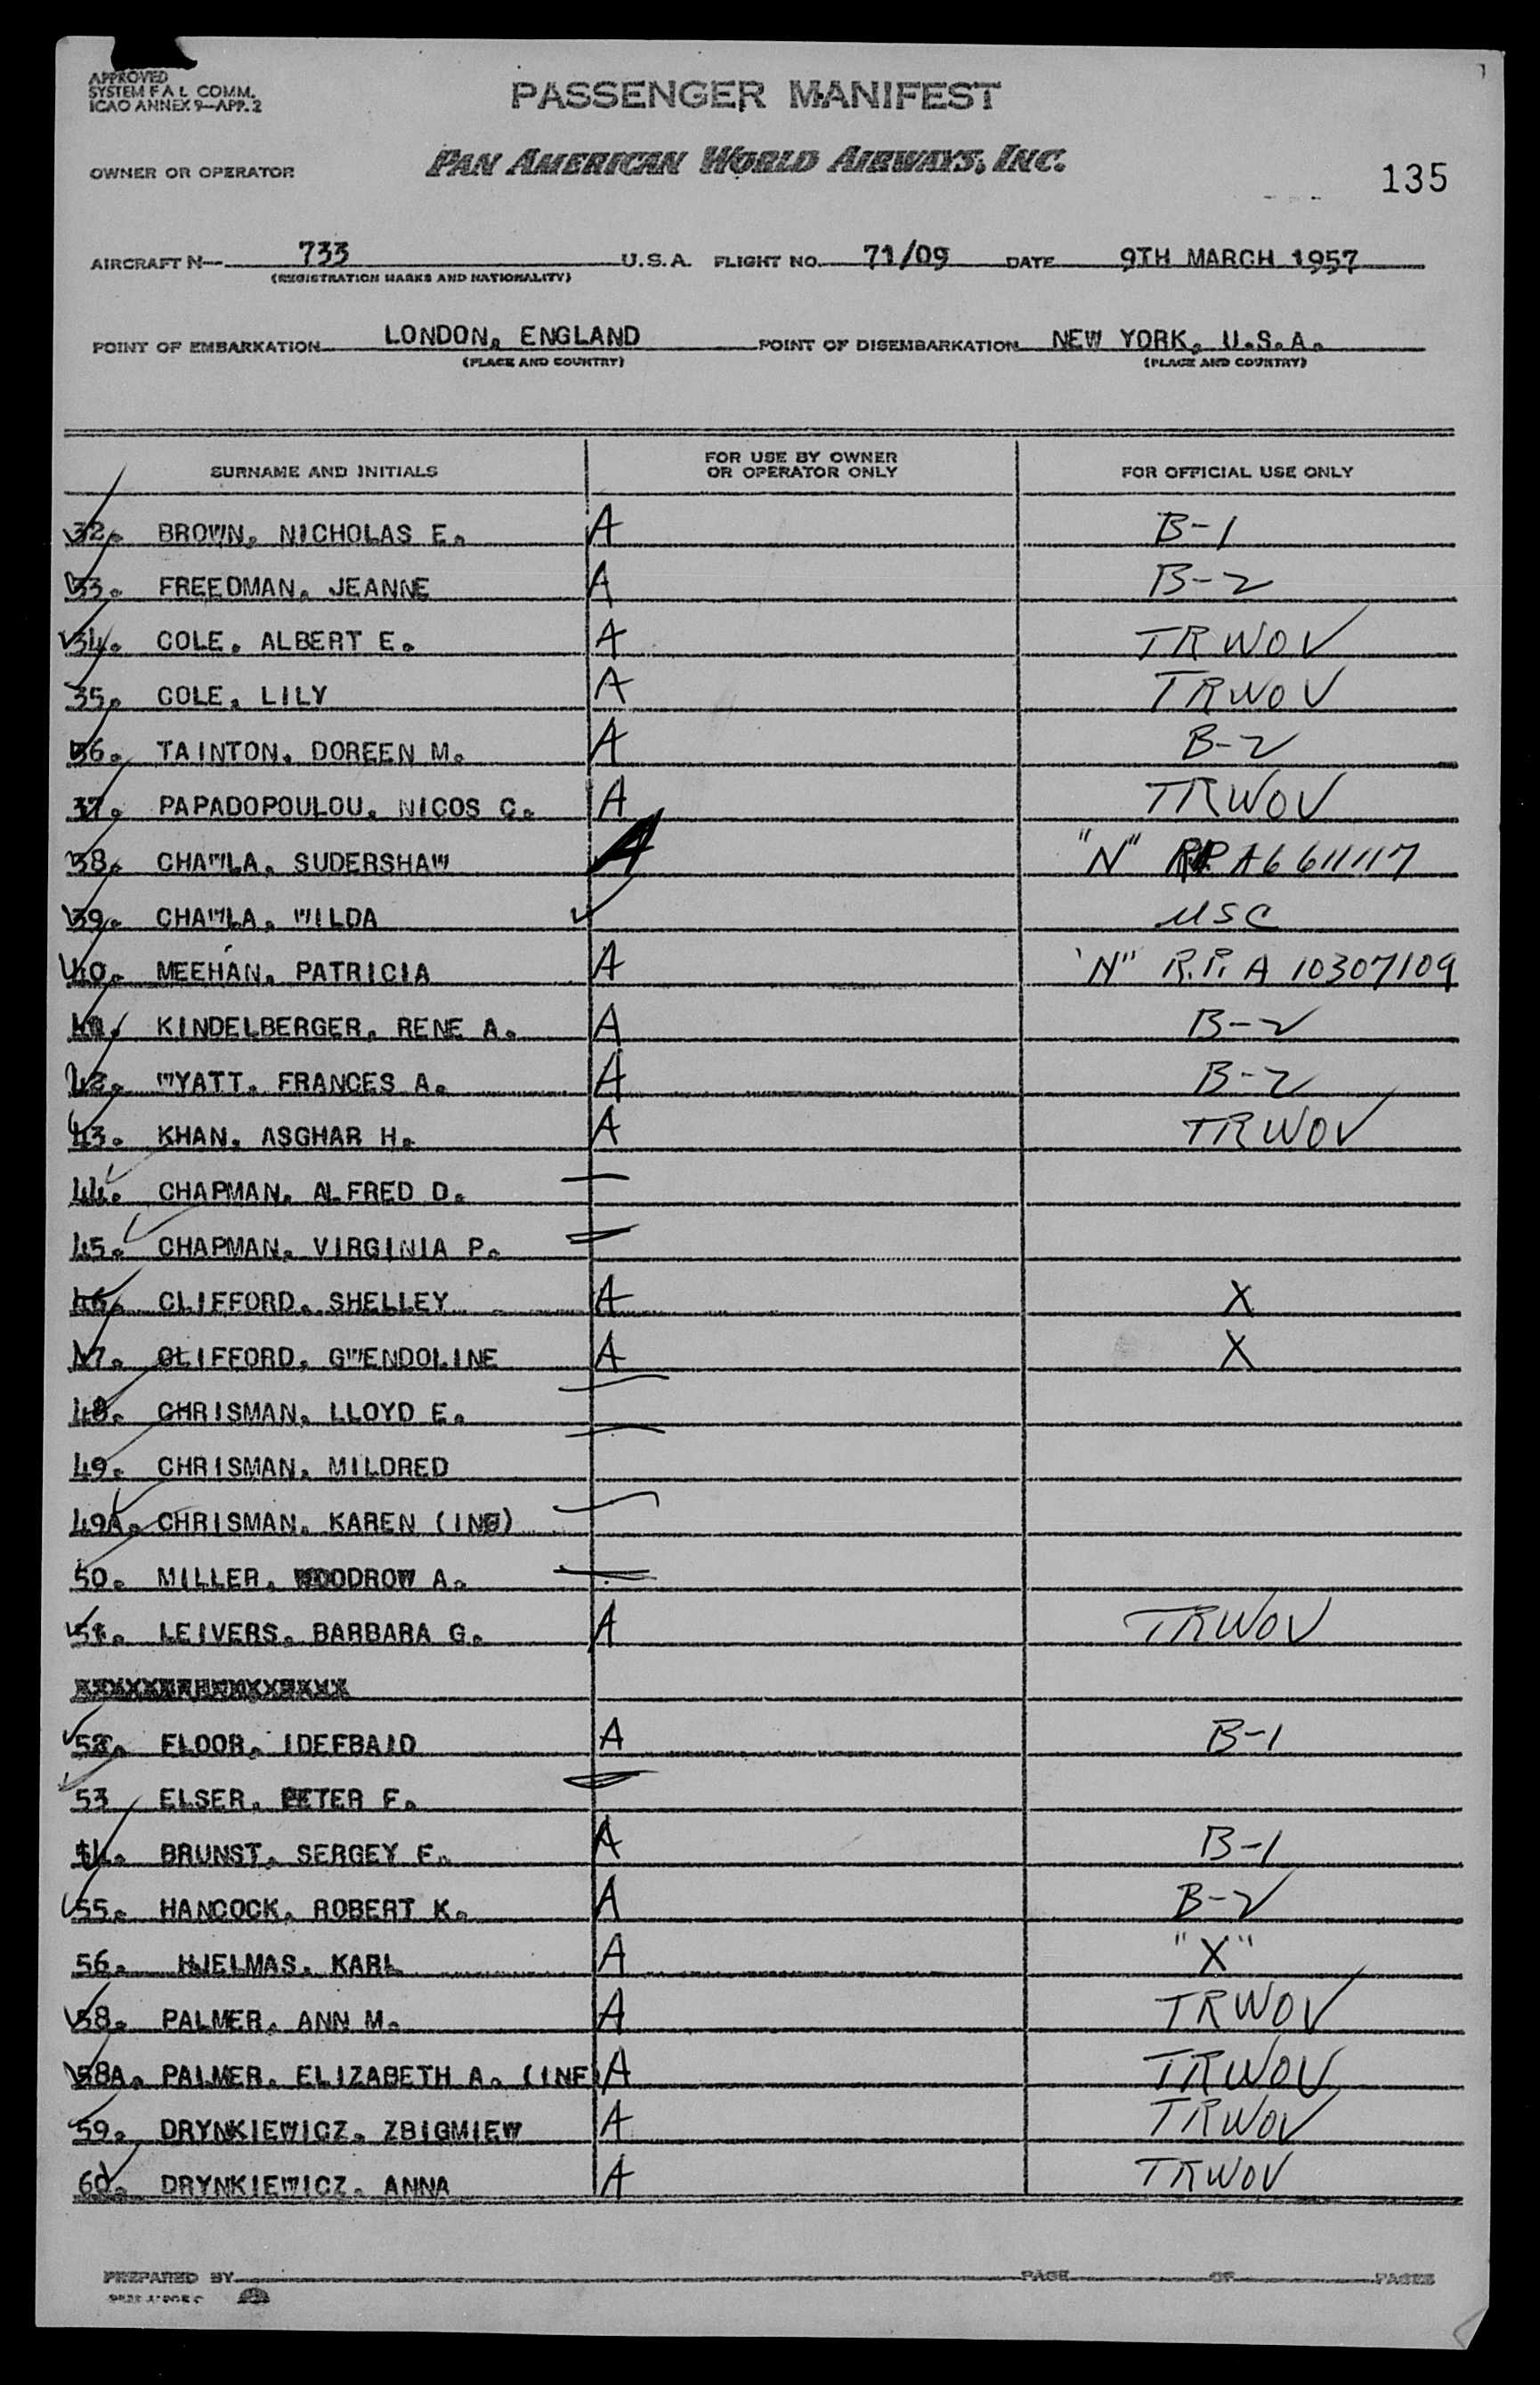 APPROVED
SYSTEM F A L COMM.
ICAO ANNEX 9—APP. 2
PASSENGER MANIFEST
OWNER OR OPERATOR PAN AMERICAN WORLD AIRWAYS, INC.
135
AIRCRAFT N— 733 U.S.A. FLIGHT NO. 71/09 DATE 9TH MARCH 1957
(REGISTRATION MARKS AND NATIONALITY)
POINT OF EMBARKATION LONDON, ENGLAND POINT OF DISEMBARKATION NEW YORK, U.S.A.
(PLACE AND COUNTRY) (PLACE AND COUNTRY)
SURNAME AND INITIALS FOR USE BY OWNER OR OPERATOR ONLY FOR OFFICIAL USE ONLY
32. BROWN, NICHOLAS E. A B-1
33. FREEDMAN, JEANNE A B-2
34. COLE, ALBERT E. A TRWOV
35. COLE, LILY A TRWOV
36. TAINTON, DOREEN M. A B-2
37. PAPADOPOULOU, NICOS C. A TRWOV
38. CHAWLA, SUDERSHAW A "N" A6 611117
39. CHAWLA, WILDA USC
40. MEEHAN, PATRICIA A "N" R.P. A 10307109
41. KINDELBERGER, RENE A. A B-2
42. WYATT, FRANCES A. A B-2
43. KHAN, ASGHAR H. A TRWOV
44. CHAPMAN, ALFRED D.
45. CHAPMAN, VIRGINIA P.
46. CLIFFORD, SHELLEY A X
47. CLIFFORD, GWENDOLINE A X
48. CHRISMAN, LLOYD E.
49. CHRISMAN, MILDRED
49A. CHRISMAN, KAREN (INF)
50. MILLER, WOODROW A.
51. LEIVERS, BARBARA G. A TRWOV
52. FLOOR, IDEFBAID A B-1
53 ELSER, PETER F.
54. BRUNST, SERGEY E. A B-1
55. HANCOCK, ROBERT K. A B-2
56. HJELMAS, KARL A "X"
58. PALMER, ANN M. A TRWOV
58A. PALMER, ELIZABETH A. (INF) A TRWOV
59. DRYNKIEWICZ, ZBIGMIEW A TRWOV
60. DRYNKIEWICZ, ANNA A TRWOV
PREPARED BY PAGE OF PAGES